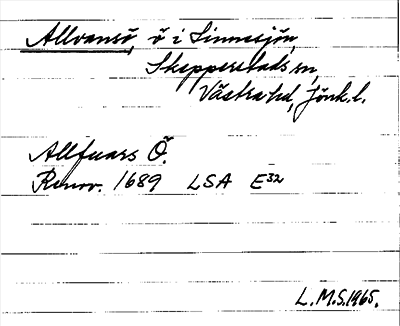 Allvansö, ö i Linnesjön,
Skepperstads sn,
Västra hd, Jönk.l.
Allfuars Ö.
Renov. 1689 LSA E32
L.M.S.1965.